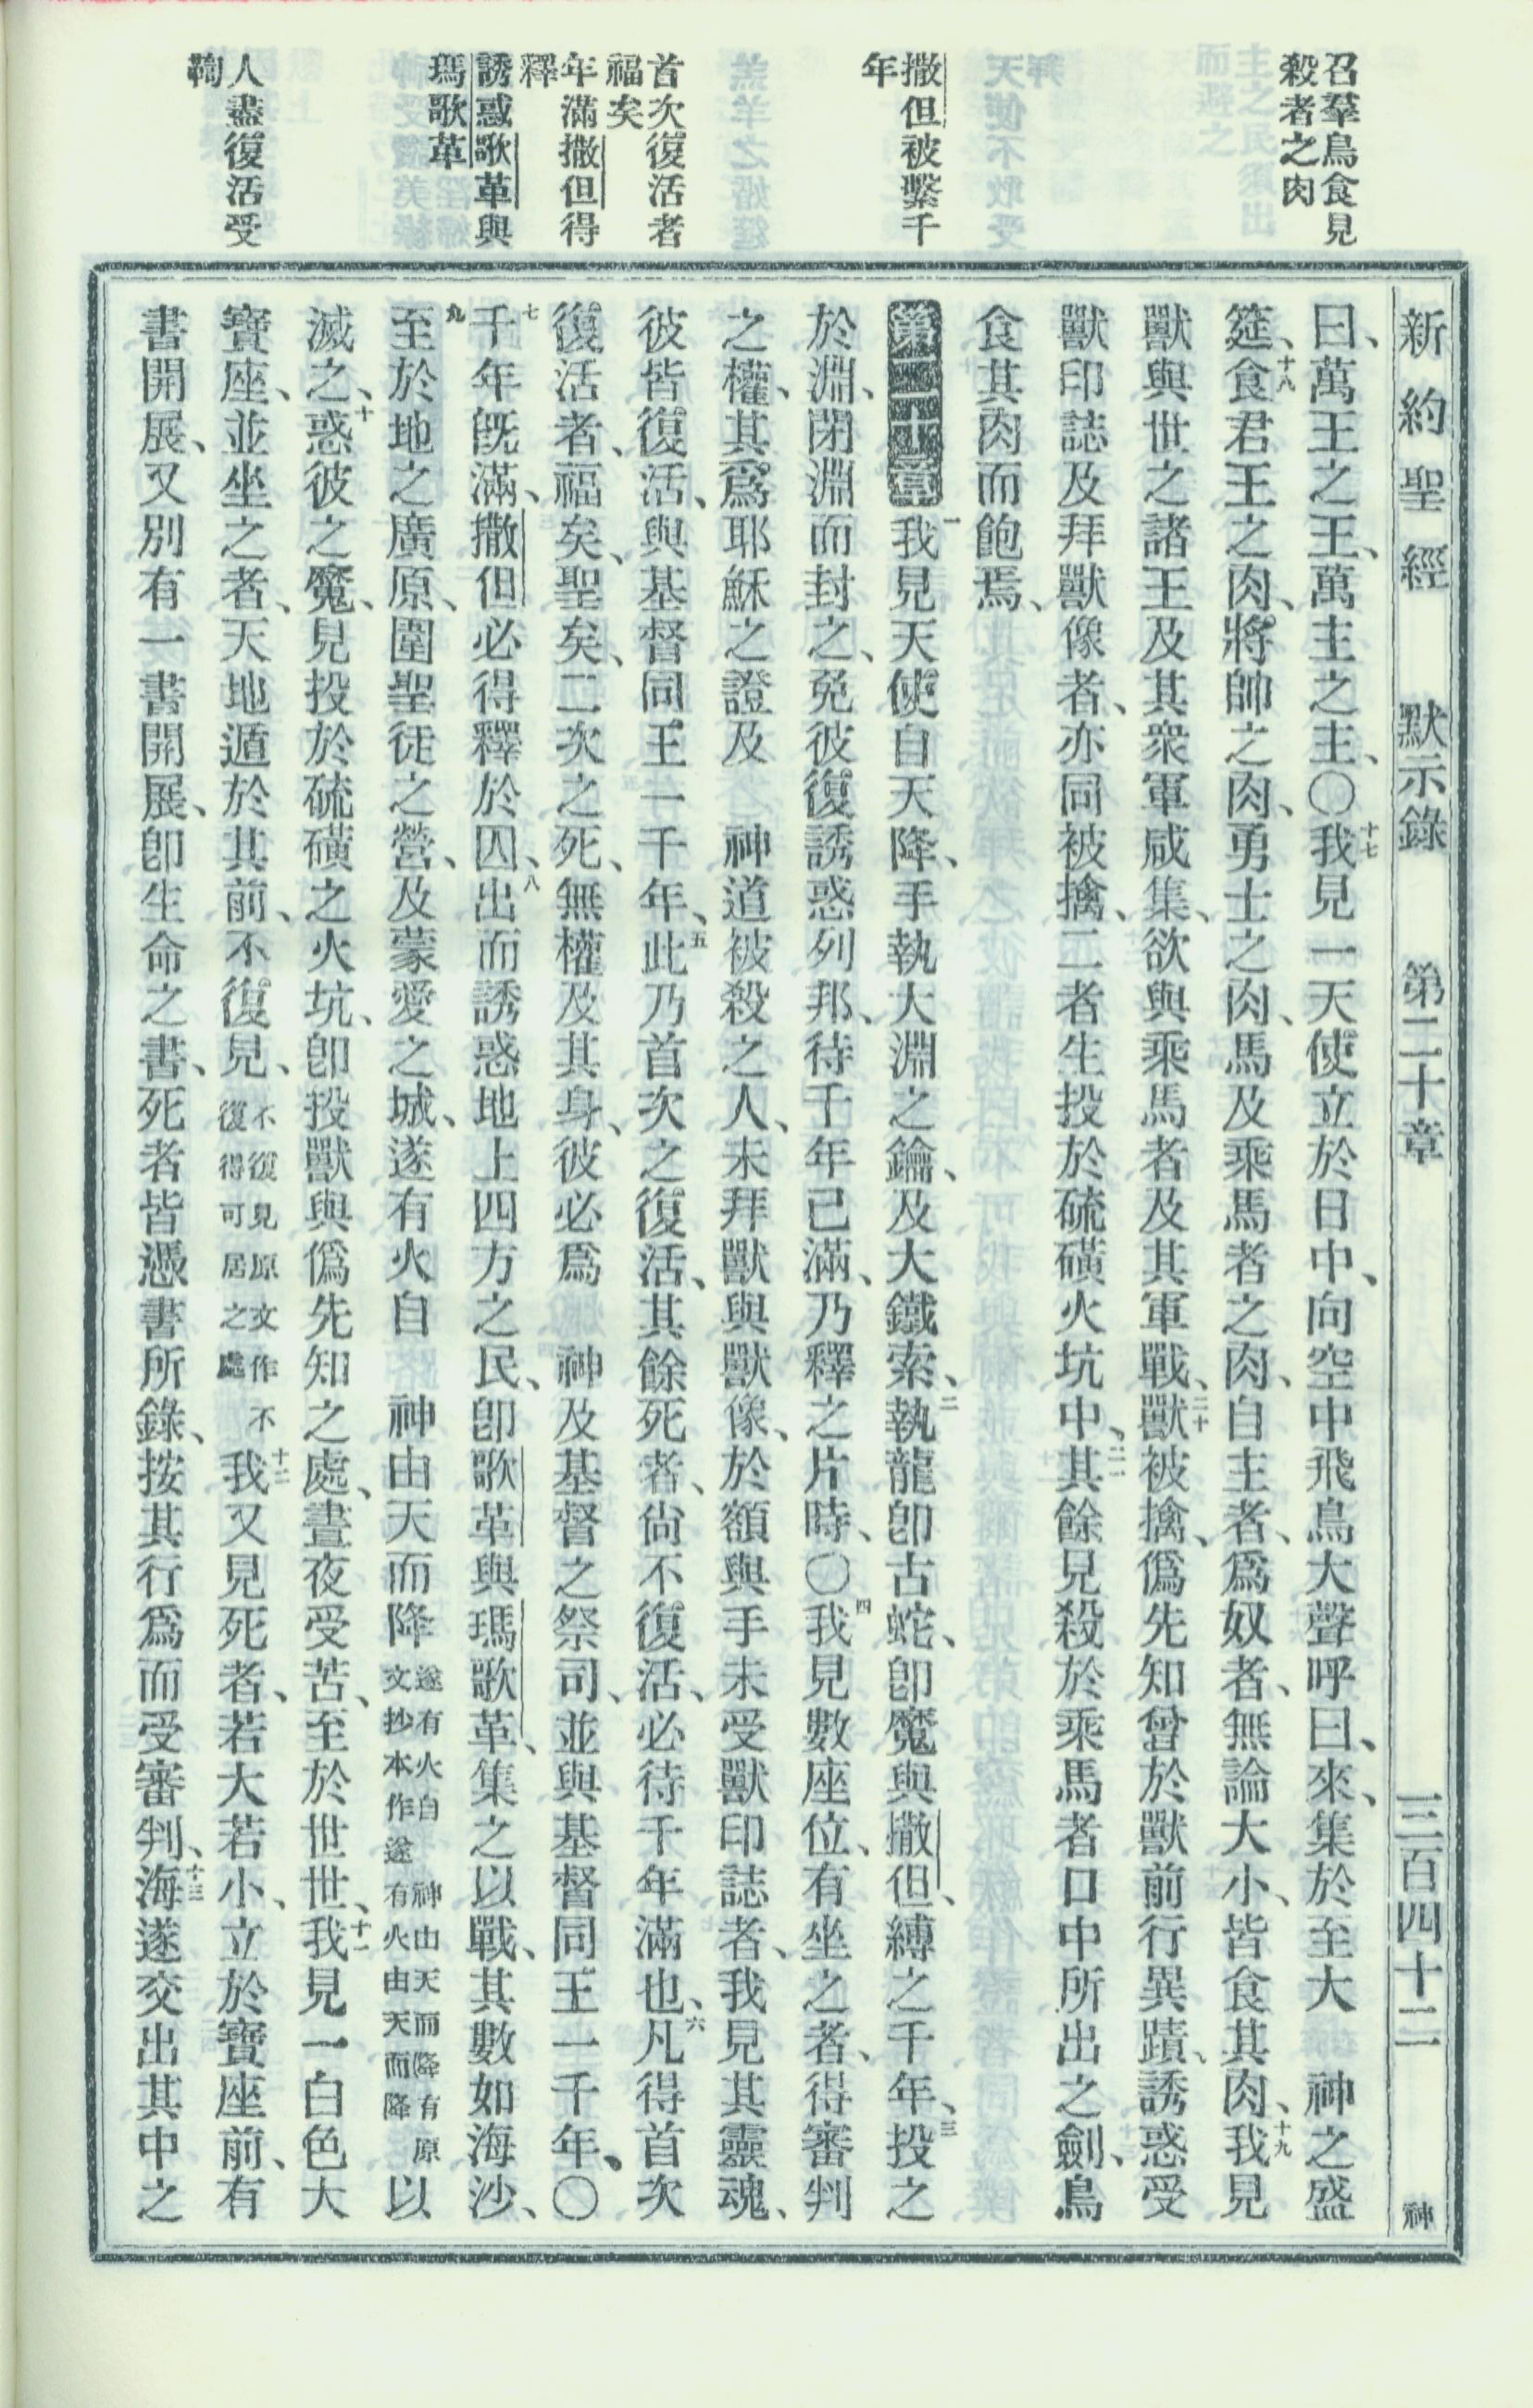 召羣鳥食見
殺者之肉
撒但被繫千
年
首次復活者
福矣
年滿撒但得
釋
誘惑歌革與
瑪歌革
人盡復活受
鞫
新約聖經 默示錄 第二十章 三百四十二 神
曰、萬王之王、萬主之主、〇十七我見一天使立於日中、向空中飛鳥大聲呼曰、來、集於至大 神之盛
筵、十八食君王之肉、將帥之肉、勇士之肉、馬及乘馬者之肉、自主者、爲奴者、無論大小、皆食其肉、十九我見
獸與世之諸王及其衆軍咸集、欲與乘馬者及其軍戰、二十獸被擒、僞先知曾於獸前行異蹟、誘惑受
獸印誌及拜獸像者、亦同被擒、二者生投於硫磺火坑中、二一其餘見殺於乘馬者口中所出之劍、鳥
食其肉而飽焉、
第二十章 一我見天使自天降、手執大淵之鑰、及大鐵索、二執龍卽古蛇、卽魔與撒但、縛之千年、三投之
於淵、閉淵而封之、免彼復誘惑列邦、待千年已滿、乃釋之片時、〇四我見數座位、有坐之者、得審判
之權、其爲耶穌之證及 神道被殺之人、未拜獸與獸像、於額與手未受獸印誌者、我見其靈魂、
彼皆復活、與基督同王一千年、五此乃首次之復活、其餘死者、尙不復活、必待千年滿也、六凡得首次
復活者、福矣、聖矣、二次之死、無權及其身、彼必爲 神及基督之祭司、並與基督同王一千年、〇
七千年旣滿、撒但必得釋於囚、八出而誘惑地上四方之民、卽歌革與瑪歌革、集之以戰、其數如海沙、
九至於地之廣原、圍聖徒之營、及蒙愛之城、遂有火自 神由天而降遂有火自 神由天而降有原文抄本作遂有火由天而降以
滅之、十惑彼之魔、見投於硫磺之火坑、卽投獸與僞先知之處、晝夜受苦、至於世世、十一我見一白色大
寶座、並坐之者、天地遁於其前、不復見、不復見原文作不復得可居之處十二我又見死者、若大若小、立於寶座前、有
書開展、又別有一書開展、卽生命之書、死者皆憑書所錄、按其行爲而受審判、十三海遂交出其中之